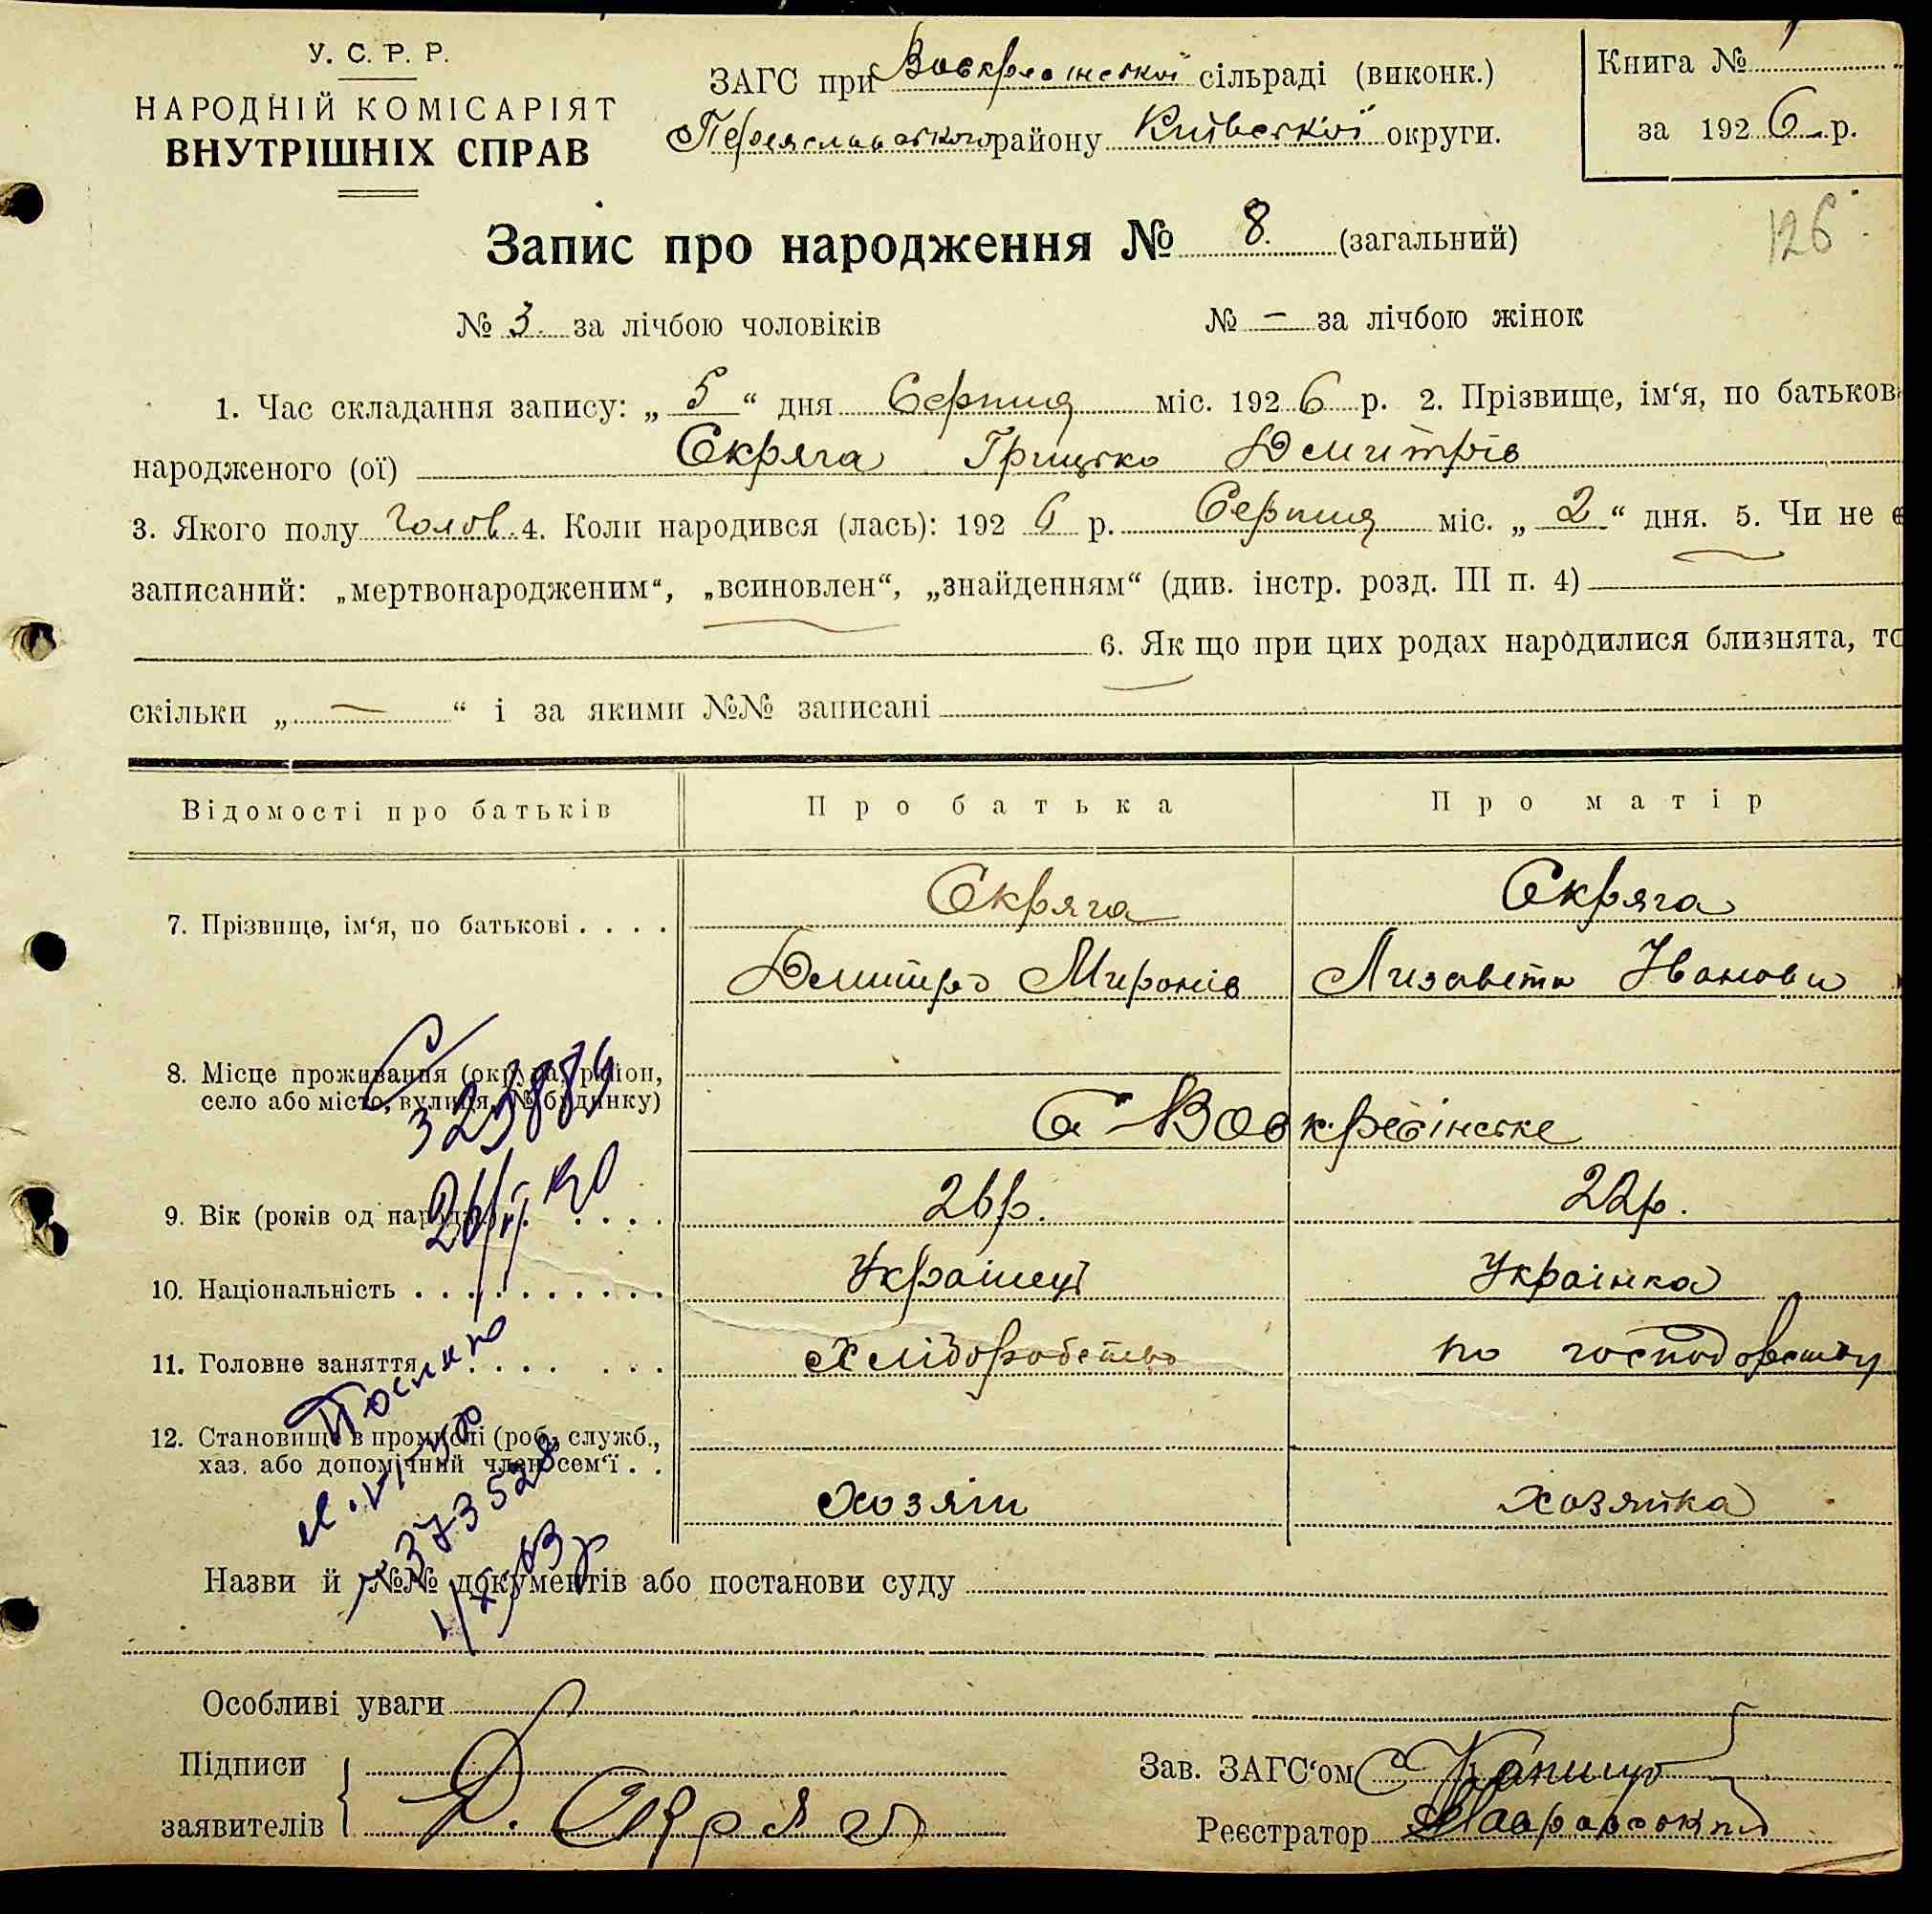 У. С. Р. Р.
НАРОДНІЙ КОМІСАРІЯТ
ВНУТРІШНІХ СПРАВ
ЗАГС при сільраді (виконк.)
Переяславського району Київської округи.
Книга №
за 1926 р.
126
Запис про народження № 8. (загальний)
№ 3. за лічбою чоловіків № — за лічбою жінок
1. Час складання запису: „ 5 “ дня Серпня міс. 1926 р. 2. Прізвище, ім‘я, по батькові
народженого (ої) Скряга Грицько Дмитрів
3. Якого полу чолов. 4. Коли народився (лась): 1926 р. Серпня міс. „ 2 “ дня. 5. Чи не є
записаний: „мертвонародженим“, „всиновлен“, „знайденням“ (див. інстр. розд. III п. 4)
6. Як що при цих родах народилися близнята, то
скільки „ — “ і за якими №№ записані
Відомості про батьків Про батька Про матір
7. Прізвище, ім‘я, по батькові . . . . Скряга Скряга
Дмитро Миронів Лизавета Іванова
8. Місце проживання (округа, район,
село або місто, вулиця, № будинку)
С. Воскресінське
9. Вік (років од народж.) . . . . 26 р. 22 р.
10. Національність . . . . . . . . . . Українці Українка
11. Головне заняття . . . . . . . Хліборобство по господарству
12. Становище в промислі (роб., служб.,
хаз. або допомічний член сем‘ї . .
хозяін хозяйка
323884
373528
Назви й №№ документів або постанови суду
Особливі уваги
Підписи
заявителів
Д. Скряга
Зав. ЗАГС‘ом
Реєстратор